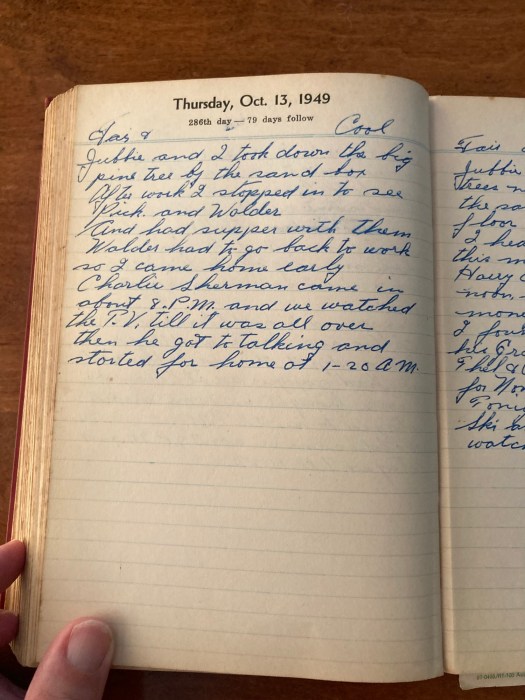 Thursday, Oct. 13, 1949
286th day — 79 days follow
Fair & Cool
Jubbie and I took down the big
pine tree by the sand box
After work I stopped in to see
Pick. and Walder
And had supper with them
Walder had to go back to work
so I came home early
Charlie Sherman came in
about 8. P.M. and we watched
the T.V. till it was all over
then he got to talking and
started for home at 1-20 A.M.
Fair
Jubbie
Trees
the sa
floor
I hea
this m
Harry
noon.
mone
I
for
Ski
watch